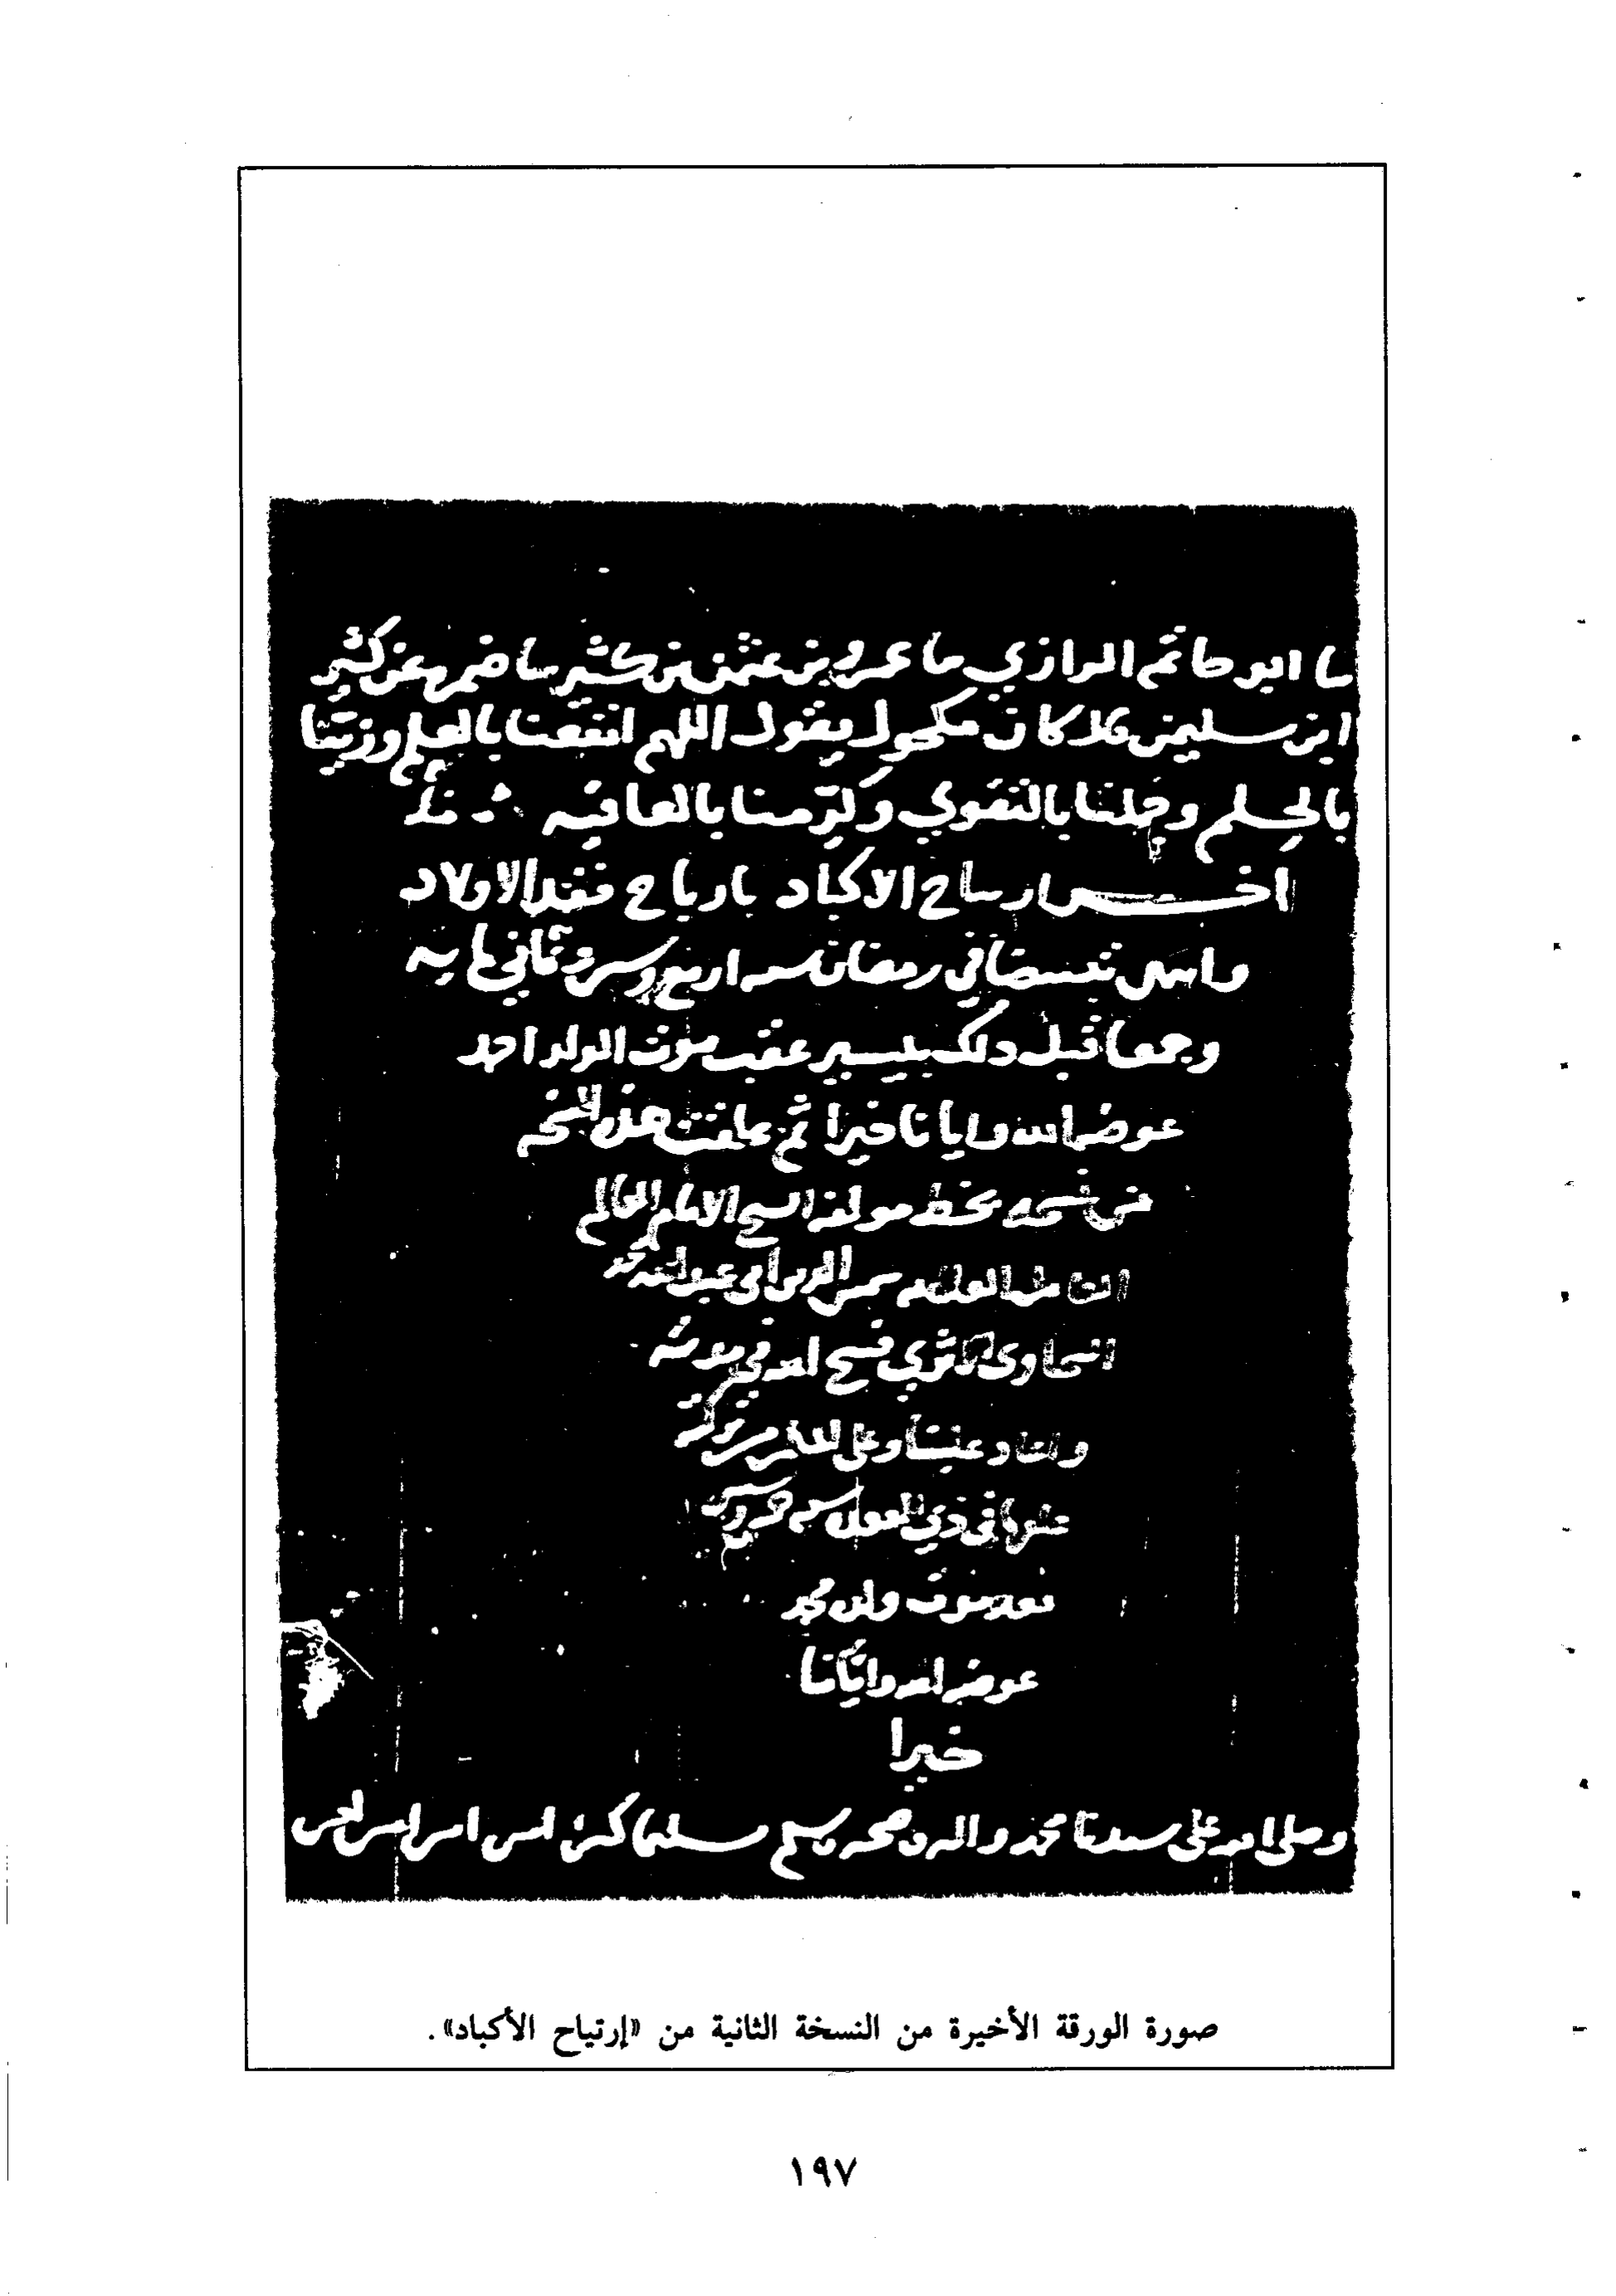 ثنا ابو حاتم الرازي ثنا عمرو بن عثمن بن كثير ثنا ضمره عن كثير
ابن سليمن قال كان مكحول يقول اللهم انفعنا بالعلم وزينا
بالحلم وجملنا بالتقوي وكرمنا بالعافيه
اخر ارتياح الاكباد بارباح فقد الاولاد
وانتهى تبييضا في رمضان سنه اربع وستين وثماني مايه
وجمعا قبل ذلك بيسير عقب موت الولد احمد
عوضها الله وايانا خيرا ثم علقت هذه النسخه
من نسخه بخط مولفه الشيخ الامام العالم
العلامه شمس الدين ابي عبد الله محمد
السخاوى الاثري فسح الله في مدته
واعاد علينا وعلى المسلمين من بركته
في ذي القعده سنه
بعد موت ولدي محمد
عوضه الله وايانا
خيرا
وصلى الله على سيدنا محمد واله وصحبه وسلم تسليما كثيرا امين امين امين
صورة الورقة الأخيرة من النسخة الثانية من «إرتياح الأكباد».
١٩٧